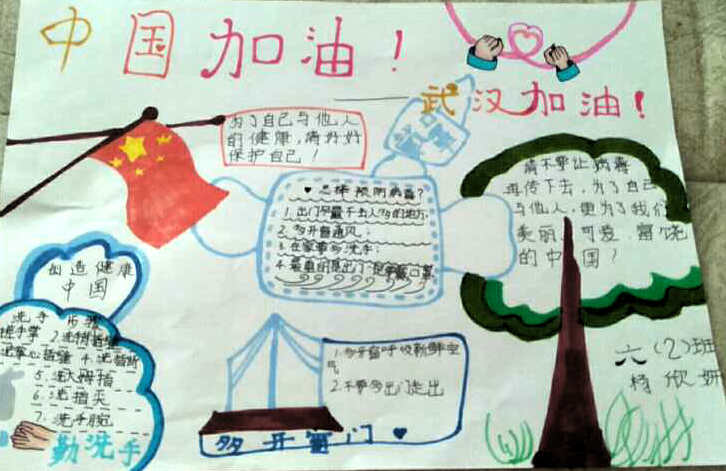 中国加油！
——武汉加油！
为了自己与他人
的健康，请好好
保护自己！
口罩
♥怎样预防病毒？
1.出门尽量不去人多的地方
2.多开窗通风
3.在家要多洗手
4.最重的是出门一定要戴口罩
请不要让病毒
再传下去，为了自己
与他人，更为了我们
美丽、可爱、富饶
的中国？
创造健康
中国
洗手步骤
洗手掌 2.洗
洗掌心指缝 4.洗指背
5.洗大姆指
6.洗指尖
7.洗手腕
勤洗手
1.多开窗呼吸新鲜空
气
2.不要多出门走出
多开窗门♥
六(2)班
杨欣妍